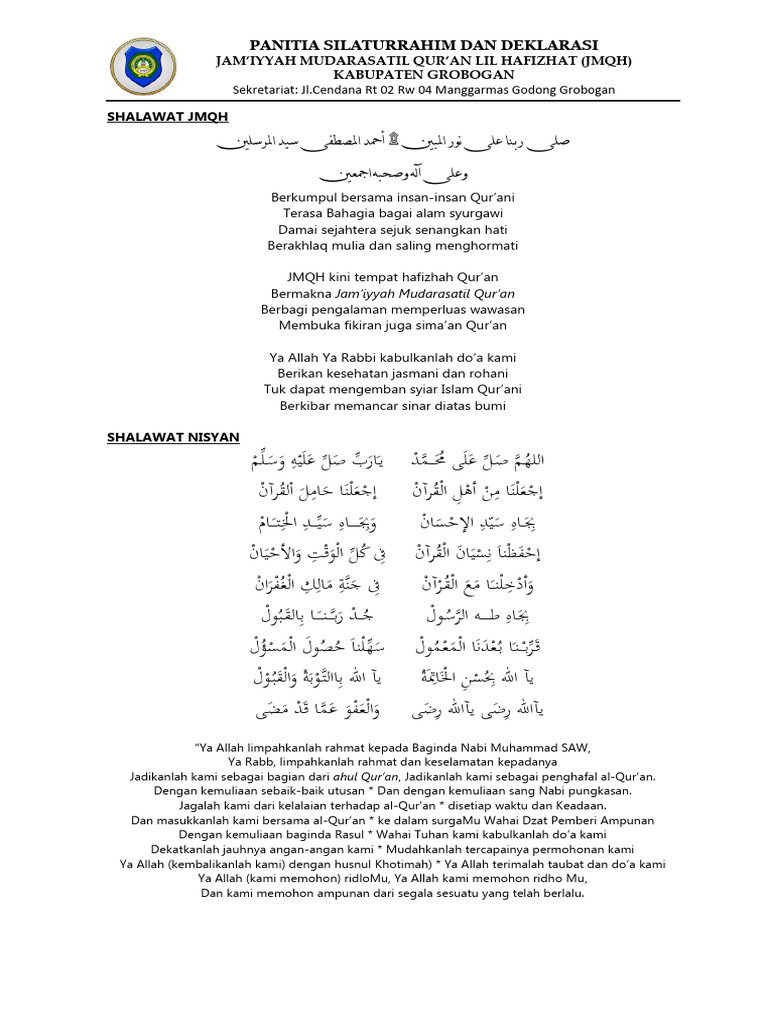 PANITIA SILATURRAHIM DAN DEKLARASI
JAM'IYYAH MUDARASATIL QUR'AN LIL HAFIZHAT (JMQH)
KABUPATEN GROBOGAN
Sekretariat: Jl.Cendana Rt 02 Rw 04 Manggarmas Godong Grobogan
SHALAWAT JMQH
صلى ربنا على نور المبين ۞ أحمد المصطفى سيد المرسلين
وعلى آله وصحبه اجمعين
Berkumpul bersama insan-insan Qur'ani
Terasa Bahagia bagai alam syurgawi
Damai sejahtera sejuk senangkan hati
Berakhlaq mulia dan saling menghormati
JMQH kini tempat hafizhah Qur'an
Bermakna Jam'iyyah Mudarasatil Qur'an
Berbagi pengalaman memperluas wawasan
Membuka fikiran juga sima'an Qur'an
Ya Allah Ya Rabbi kabulkanlah do'a kami
Berikan kesehatan jasmani dan rohani
Tuk dapat mengemban syiar Islam Qur'ani
Berkibar memancar sinar diatas bumi
SHALAWAT NISYAN
اللهُمَّ صَلِّ عَلَى مُحَمَّدْ يَارَبِّ صَلِّ عَلَيْهِ وَسَلِّمْ
إجْعَلْنَا مِنْ أَهْلِ الْقُرآنْ إجْعَلْنَا حَامِلَ الْقُرآنْ
بِجَاهِ سَيِّدِ الإحْسَانْ وَبِجَاهِ سَيِّدِ الْخِتَامْ
إحْفَظْنَا نِسْيَانَ الْقُرآنْ فِى كُلِّ الْوَقْتِ وَالأحْيَانْ
وَأَدْخِلْنَا مَعَ الْقُرْآنْ فِى جَنَّةِ مَالِكِ الْغُفْرَانْ
بِجَاهِ طه الرَّسُولْ جُدْ رَبَّنَا بِالقَبُولْ
قَرِّبْنَا بُعْدَنَا الْمَعْمُولْ سَهِّلْنَا حُصُولَ الْمَسْؤُلْ
يآ الله بِحُسْنِ الْخَاتِمَةْ يآ الله بِاالتَّوْبَةْ وَالْقَبُوْلْ
يآالله رِضَى يآالله رِضَى وَالْعَفْوَ عَمَّا قَدْ مَضَى
"Ya Allah limpahkanlah rahmat kepada Baginda Nabi Muhammad SAW,
Ya Rabb, limpahkanlah rahmat dan keselamatan kepadanya
Jadikanlah kami sebagai bagian dari ahul Qur'an, Jadikanlah kami sebagai penghafal al-Qur'an.
Dengan kemuliaan sebaik-baik utusan * Dan dengan kemuliaan sang Nabi pungkasan.
Jagalah kami dari kelalaian terhadap al-Qur'an * disetiap waktu dan Keadaan.
Dan masukkanlah kami bersama al-Qur'an * ke dalam surgaMu Wahai Dzat Pemberi Ampunan
Dengan kemuliaan baginda Rasul * Wahai Tuhan kami kabulkanlah do'a kami
Dekatkanlah jauhnya angan-angan kami * Mudahkanlah tercapainya permohonan kami
Ya Allah (kembalikanlah kami) dengan husnul Khotimah) * Ya Allah terimalah taubat dan do'a kami
Ya Allah (kami memohon) ridloMu, Ya Allah kami memohon ridho Mu,
Dan kami memohon ampunan dari segala sesuatu yang telah berlalu.